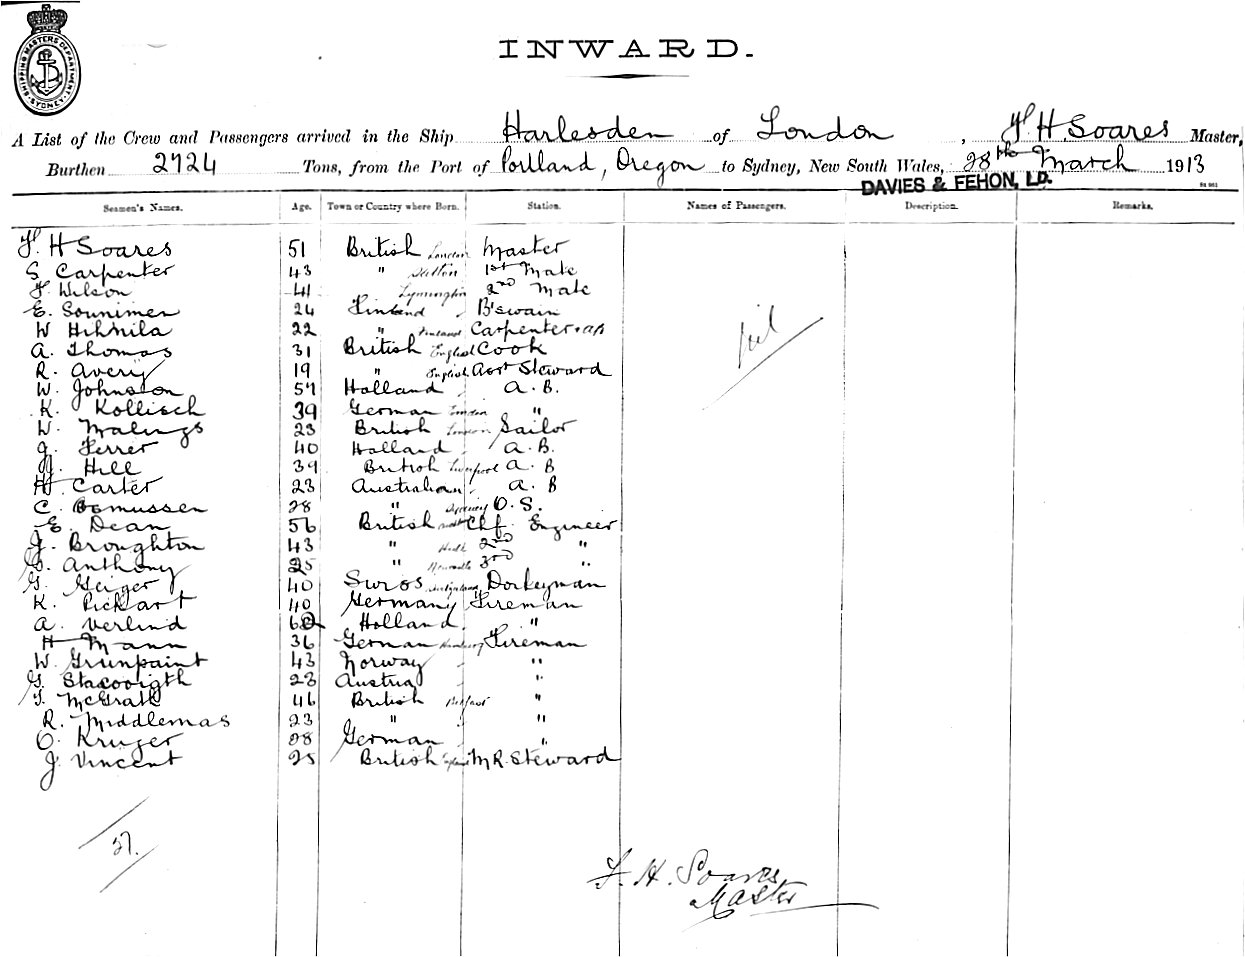 SHIPPING MASTERS DEPARTMENT SYDNEY
INWARD.
A List of the Crew and Passengers arrived in the Ship Harlesden of London, F. H. Soares Master,
Burthen 2724 Tons, from the Port of Portland, Oregon to Sydney, New South Wales, 28th March 1913
DAVIES & FEHON, LD.
Seamen's Names. Age. Town or Country where Born. Station. Names of Passengers. Description. Remarks.
F. H Soares 51 British London Master
S Carpenter 43 " 1st Mate
F Wilson 41 Lymington 2nd Mate
E. Sounimen 24 Finland B'swain
W 22 " Finland Carpenter
A. Thomas 31 British English Cook
R. Avery 19 " English Asst Steward
W. Johnston 57 Holland A. B.
K. Kollisch 39 German "
W. Malings 23 British London Sailor
J. Ferrer 40 Holland A. B.
J. Hill 39 British Liverpool A. B
H Carter 23 Australian A. B
C. Rasmussen 28 " Sydney O. S.
E. Dean 56 British Chf. Engineer
J. Broughton 43 " 2nd "
Anthony 25 " Newcastle 3rd "
G. Geiger 40 Swiss Switzerland Donkeyman
K. Pickart 40 Germany Fireman
A. Verlind Holland "
H Mann 36 German Hamburg Fireman
W. Grunpaint 43 Norway "
G. 28 Austria "
T. McGrath 46 British Belfast "
R. Middlemas 23 " "
O. Kruger 28 German "
J. Vincent 25 British England M R. Steward
Nil
27.
F. H. Soares
Master